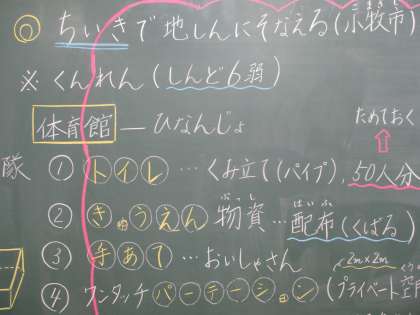 ◎ ちいきで地しんにそなえる(小牧市)
こまきし
※ くんれん(しんど6弱)
体育館 ― ひなんじょ
ためておく
⇧
隊 ① トイレ … くみ立て(パイプ), 50人分
ぶっし はいふ
② きゅうえん物資 … 配布(くばる)
③ 手あて … おいしゃさん
2m×2m
④ ワンタッチパーテーション(プライベート空